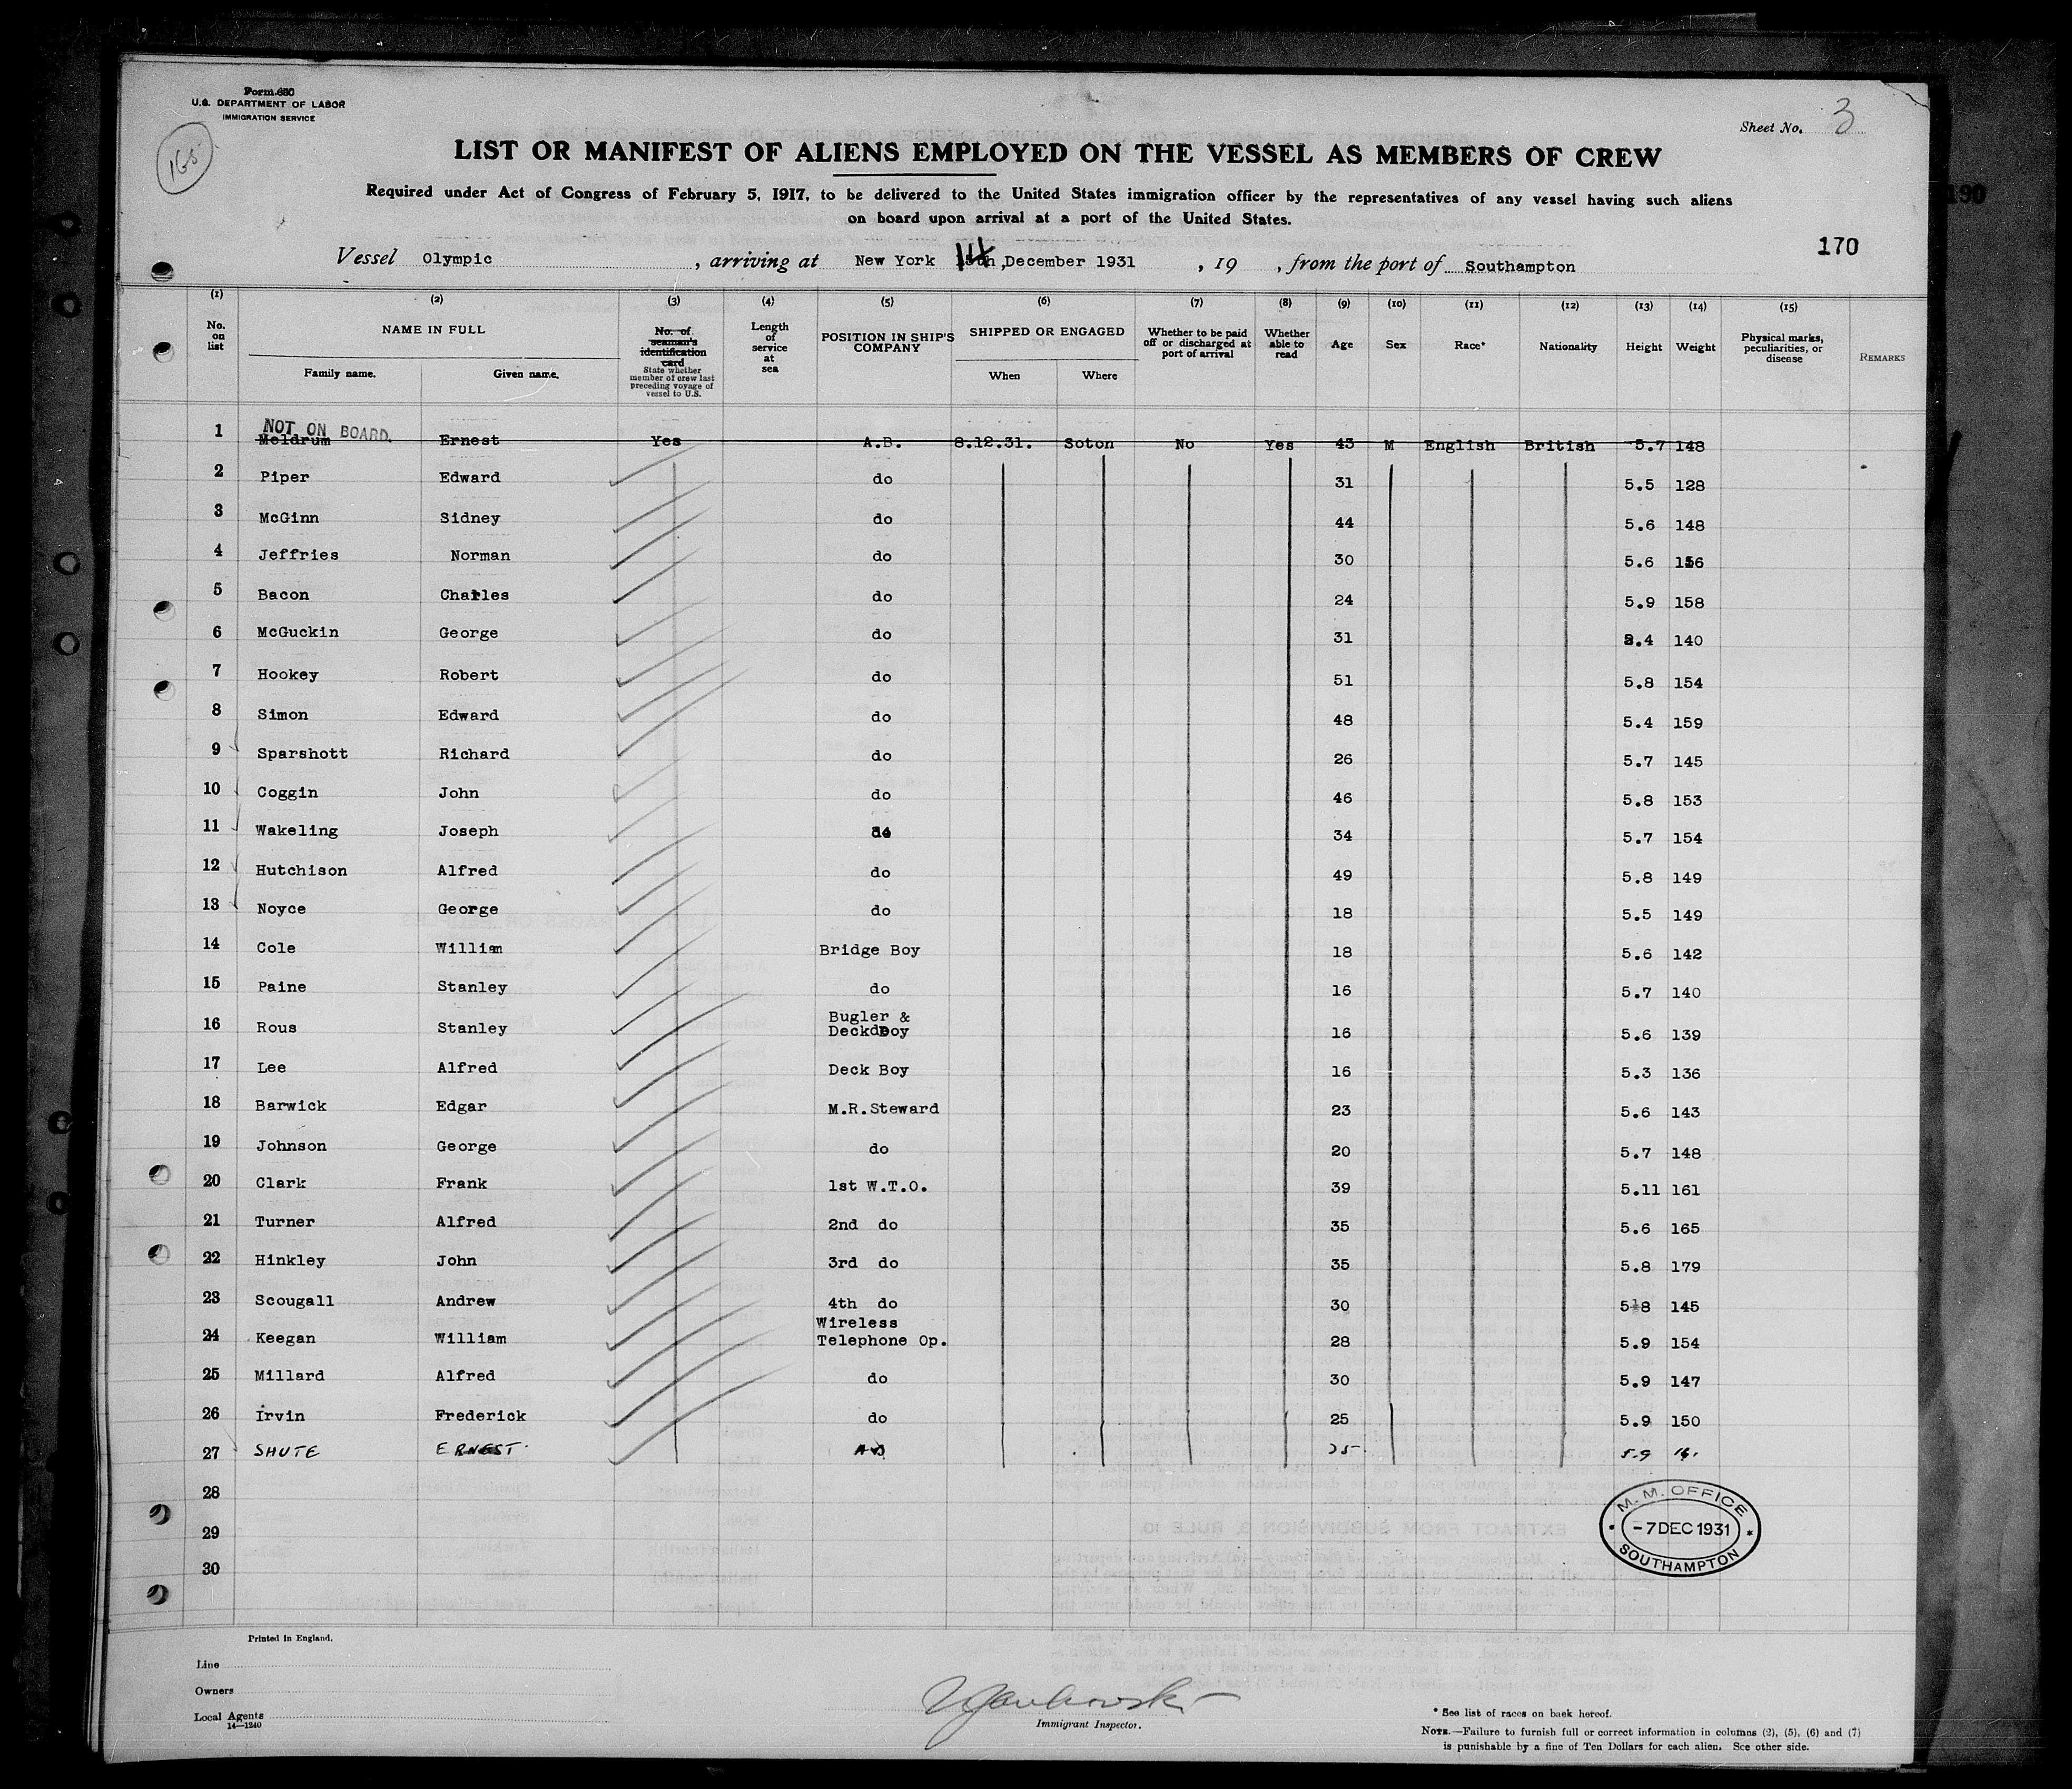 Form 680
U.S. DEPARTMENT OF LABOR
IMMIGRATION SERVICE
165
Sheet No. 3
LIST OR MANIFEST OF ALIENS EMPLOYED ON THE VESSEL AS MEMBERS OF CREW
Required under Act of Congress of February 5, 1917, to be delivered to the United States immigration officer by the representatives of any vessel having such aliens
on board upon arrival at a port of the United States.
190
170
Vessel Olympic, arriving at New York 14th, December 1931, 19 , from the port of Southampton
(1) (2) (3) (4) (5) (6) (7) (8) (9) (10) (11) (12) (13) (14) (15)
No. on list
NAME IN FULL
Family name. Given name.
No. of seaman's identification card
State whether member of crew last preceding voyage of vessel to U.S.
Length of service at sea
POSITION IN SHIP'S COMPANY
SHIPPED OR ENGAGED
When Where
Whether to be paid off or discharged at port of arrival
Whether able to read
Age Sex Race* Nationality Height Weight
Physical marks, peculiarities, or disease
REMARKS
NOT ON BOARD.
1 Meldrum Ernest Yes A.B. 8.12.31. Soton No Yes 43 M English British 5.7 148
2 Piper Edward do 31 5.5 128
3 McGinn Sidney do 44 5.6 148
4 Jeffries Norman do 30 5.6 156
5 Bacon Charles do 24 5.9 158
6 McGuckin George do 31 5.4 140
7 Hookey Robert do 51 5.8 154
8 Simon Edward do 48 5.4 159
9 Sparshott Richard do 26 5.7 145
10 Coggin John do 46 5.8 153
11 Wakeling Joseph do 34 5.7 154
12 Hutchison Alfred do 49 5.8 149
13 Noyce George do 18 5.5 149
14 Cole William Bridge Boy 18 5.6 142
15 Paine Stanley do 16 5.7 140
16 Rous Stanley Bugler & Deck Boy 16 5.6 139
17 Lee Alfred Deck Boy 16 5.3 136
18 Barwick Edgar M.R.Steward 23 5.6 143
19 Johnson George do 20 5.7 148
20 Clark Frank 1st W.T.O. 39 5.11 161
21 Turner Alfred 2nd do 35 5.6 165
22 Hinkley John 3rd do 35 5.8 179
23 Scougall Andrew 4th do 30 5.8 145
24 Keegan William Wireless Telephone Op. 28 5.9 154
25 Millard Alfred do 30 5.9 147
26 Irvin Frederick do 25 5.9 150
27 SHUTE ERNEST AB 5.9
28
29
30
M. M. OFFICE
-7 DEC 1931
SOUTHAMPTON
Printed in England.
Line
Owners
Local Agents
14—1240
Immigrant Inspector.
* See list of races on back hereof.
NOTE.—Failure to furnish full or correct information in columns (2), (5), (6) and (7)
is punishable by a fine of Ten Dollars for each alien. See other side.